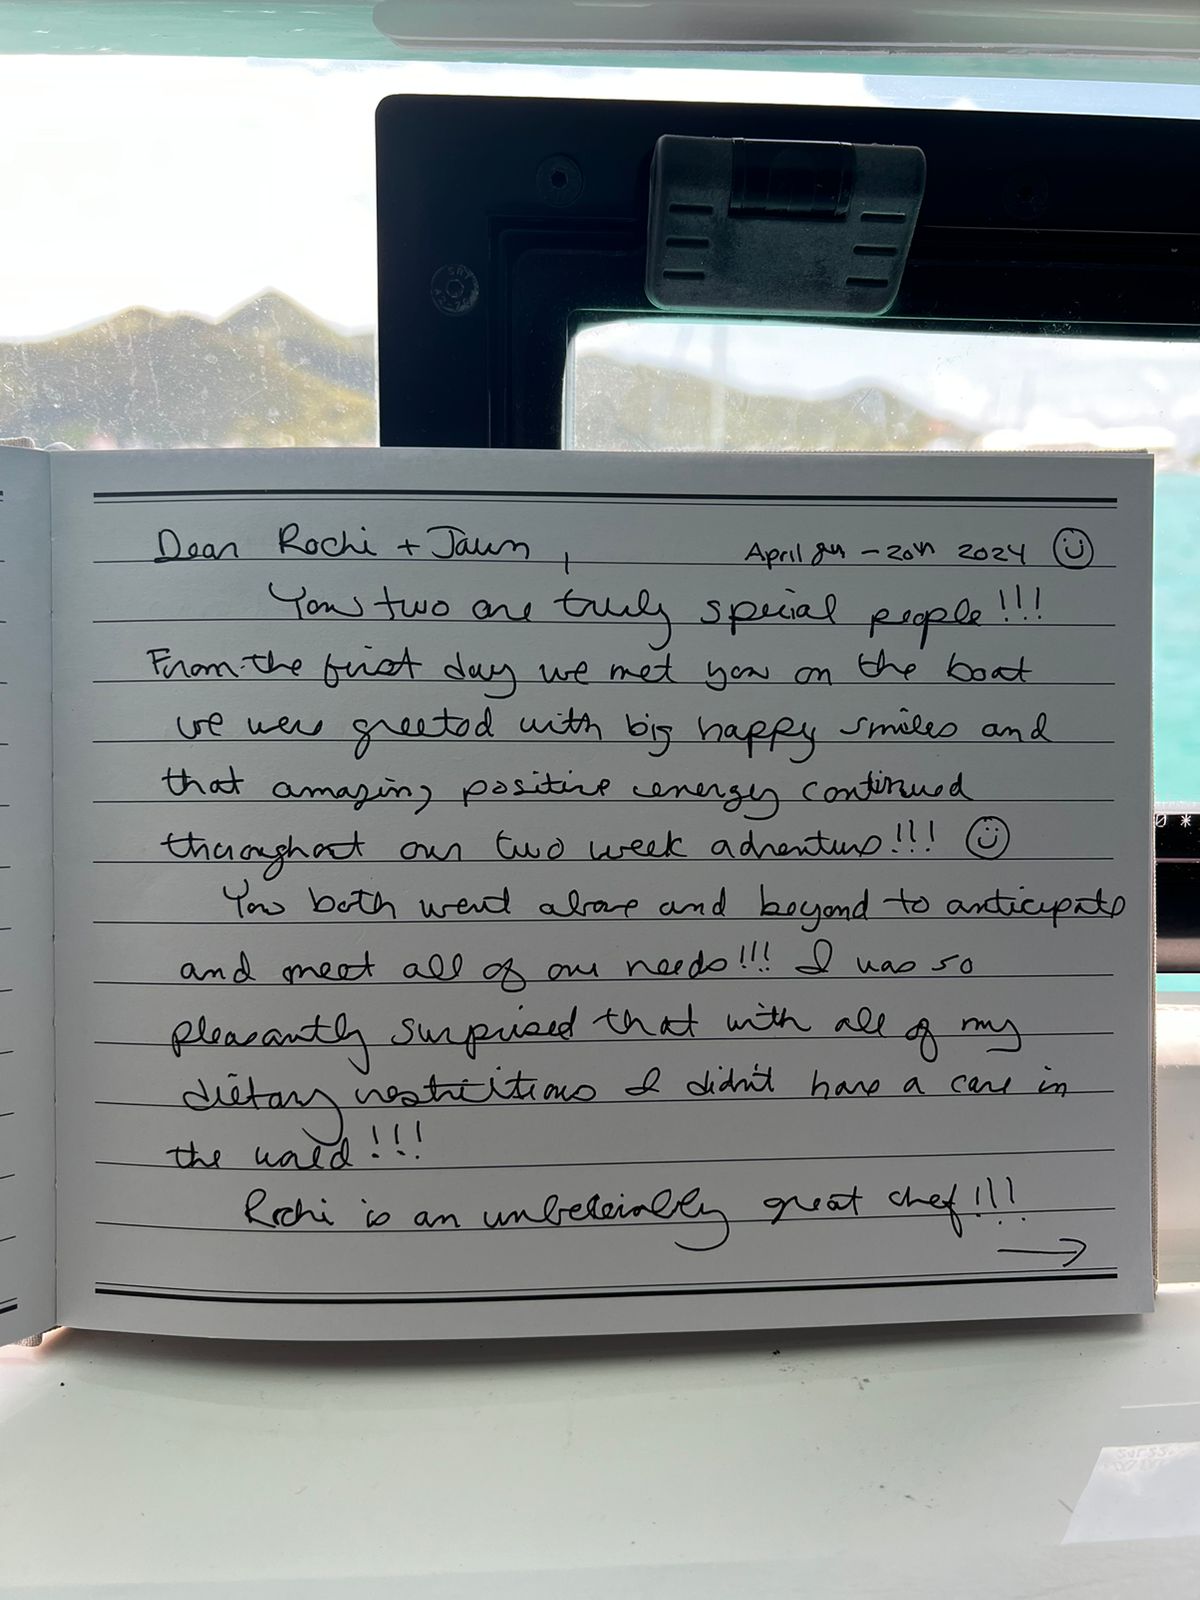 Dear Rochi + Jaun, April 8th - 20th 2024
You two are truly special people!!!
From the first day we met you on the boat
we were greeted with big happy smiles and
that amazing positive energy continued
throughout our two week adventure!!!
You both went above and beyond to anticipate
and meet all of our needs!!! I was so
pleasantly surprised that with all of my
dietary restrictions I didn't have a care in
the world!!!
Rochi is an unbeleivably great chef!!!
→